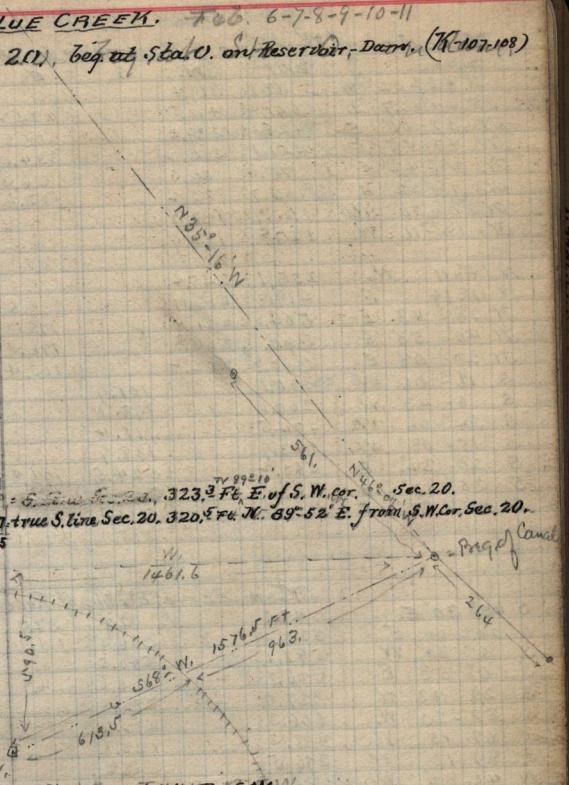 LUE CREEK. Feb. 6-7-8-9-10-11
20), beg. at Sta. 0. on Reservoir-Dam. (K-107-108)
N35°-16'W
561.
N46°
N 89°10'
323.3 Ft. E. of S. W. cor. Sec. 20.
true S. line Sec. 20. 320.5 Ft. N. 89°-52' E. from S.W. Cor. Sec. 20.
= Beg. of Canal
W.
1461.6
264
590.5
S68° W. 1576.5 Ft.
963.
613.5